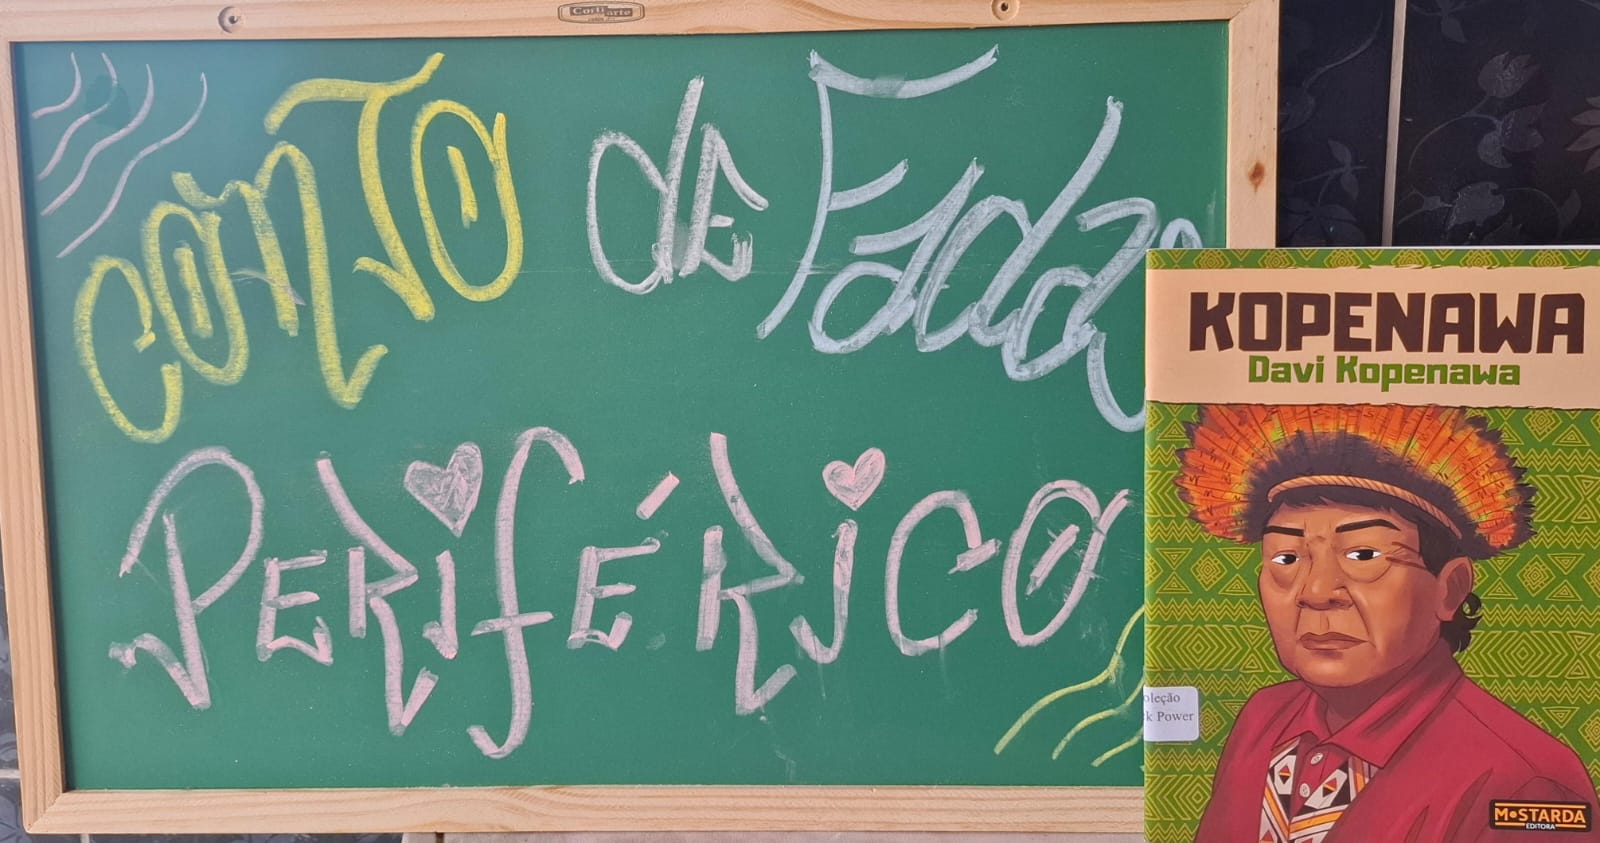 CortiArte
CONTO de Fada
PERiFÉRiCO
KOPENAWA
Davi Kopenawa
oleção
ck Power
MOSTARDA
EDITORA